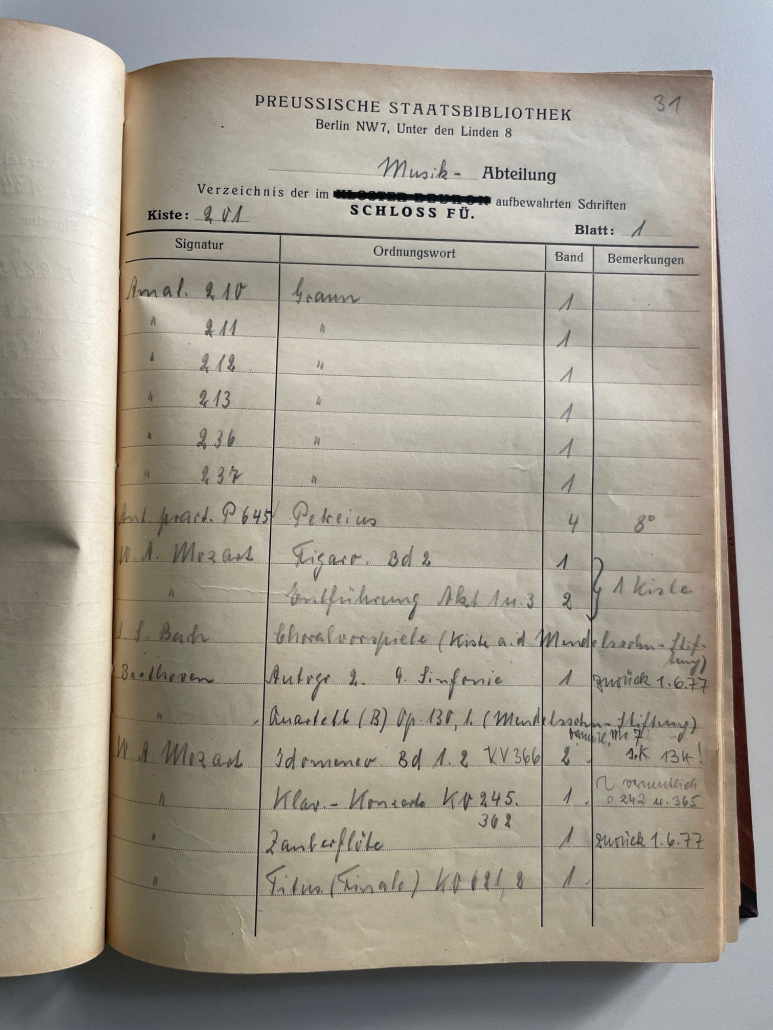 31
PREUSSISCHE STAATSBIBLIOTHEK
Berlin NW7, Unter den Linden 8
Musik- Abteilung
Verzeichnis der im KLOSTER BEURON aufbewahrten Schriften
SCHLOSS FÜ.
Kiste: 201 Blatt: 1
Signatur Ordnungswort Band Bemerkungen
Amal. 210 Graun 1
" 211 " 1
" 212 " 1
" 213 " 1
" 236 " 1
" 237 " 1
Ant. pract. P 645 Petreius 4 8°
W. A. Mozart Figaro. Bd 2 1
" Entführung Akt 1 u. 3 2 } 1 Kiste
J. S. Bach Choralvorspiele (Kiste a. d. Mendelssohn-Stif-
tung)
Beethoven Autogr 2. 9. Sinfonie 1 zurück 1.6.77
" Quartett (B) Op. 130, 1. (Mendelssohn-Stiftung)
W A Mozart Idomeneo Bd 1. 2 KV 366 2 s. K 134!
" Klav.-Konzerte KV 245. 1 vermutlich
362 242 u. 365
" Zauberflöte 1 zurück 1.6.77
" Titus (Finale) KV 621, 8 1